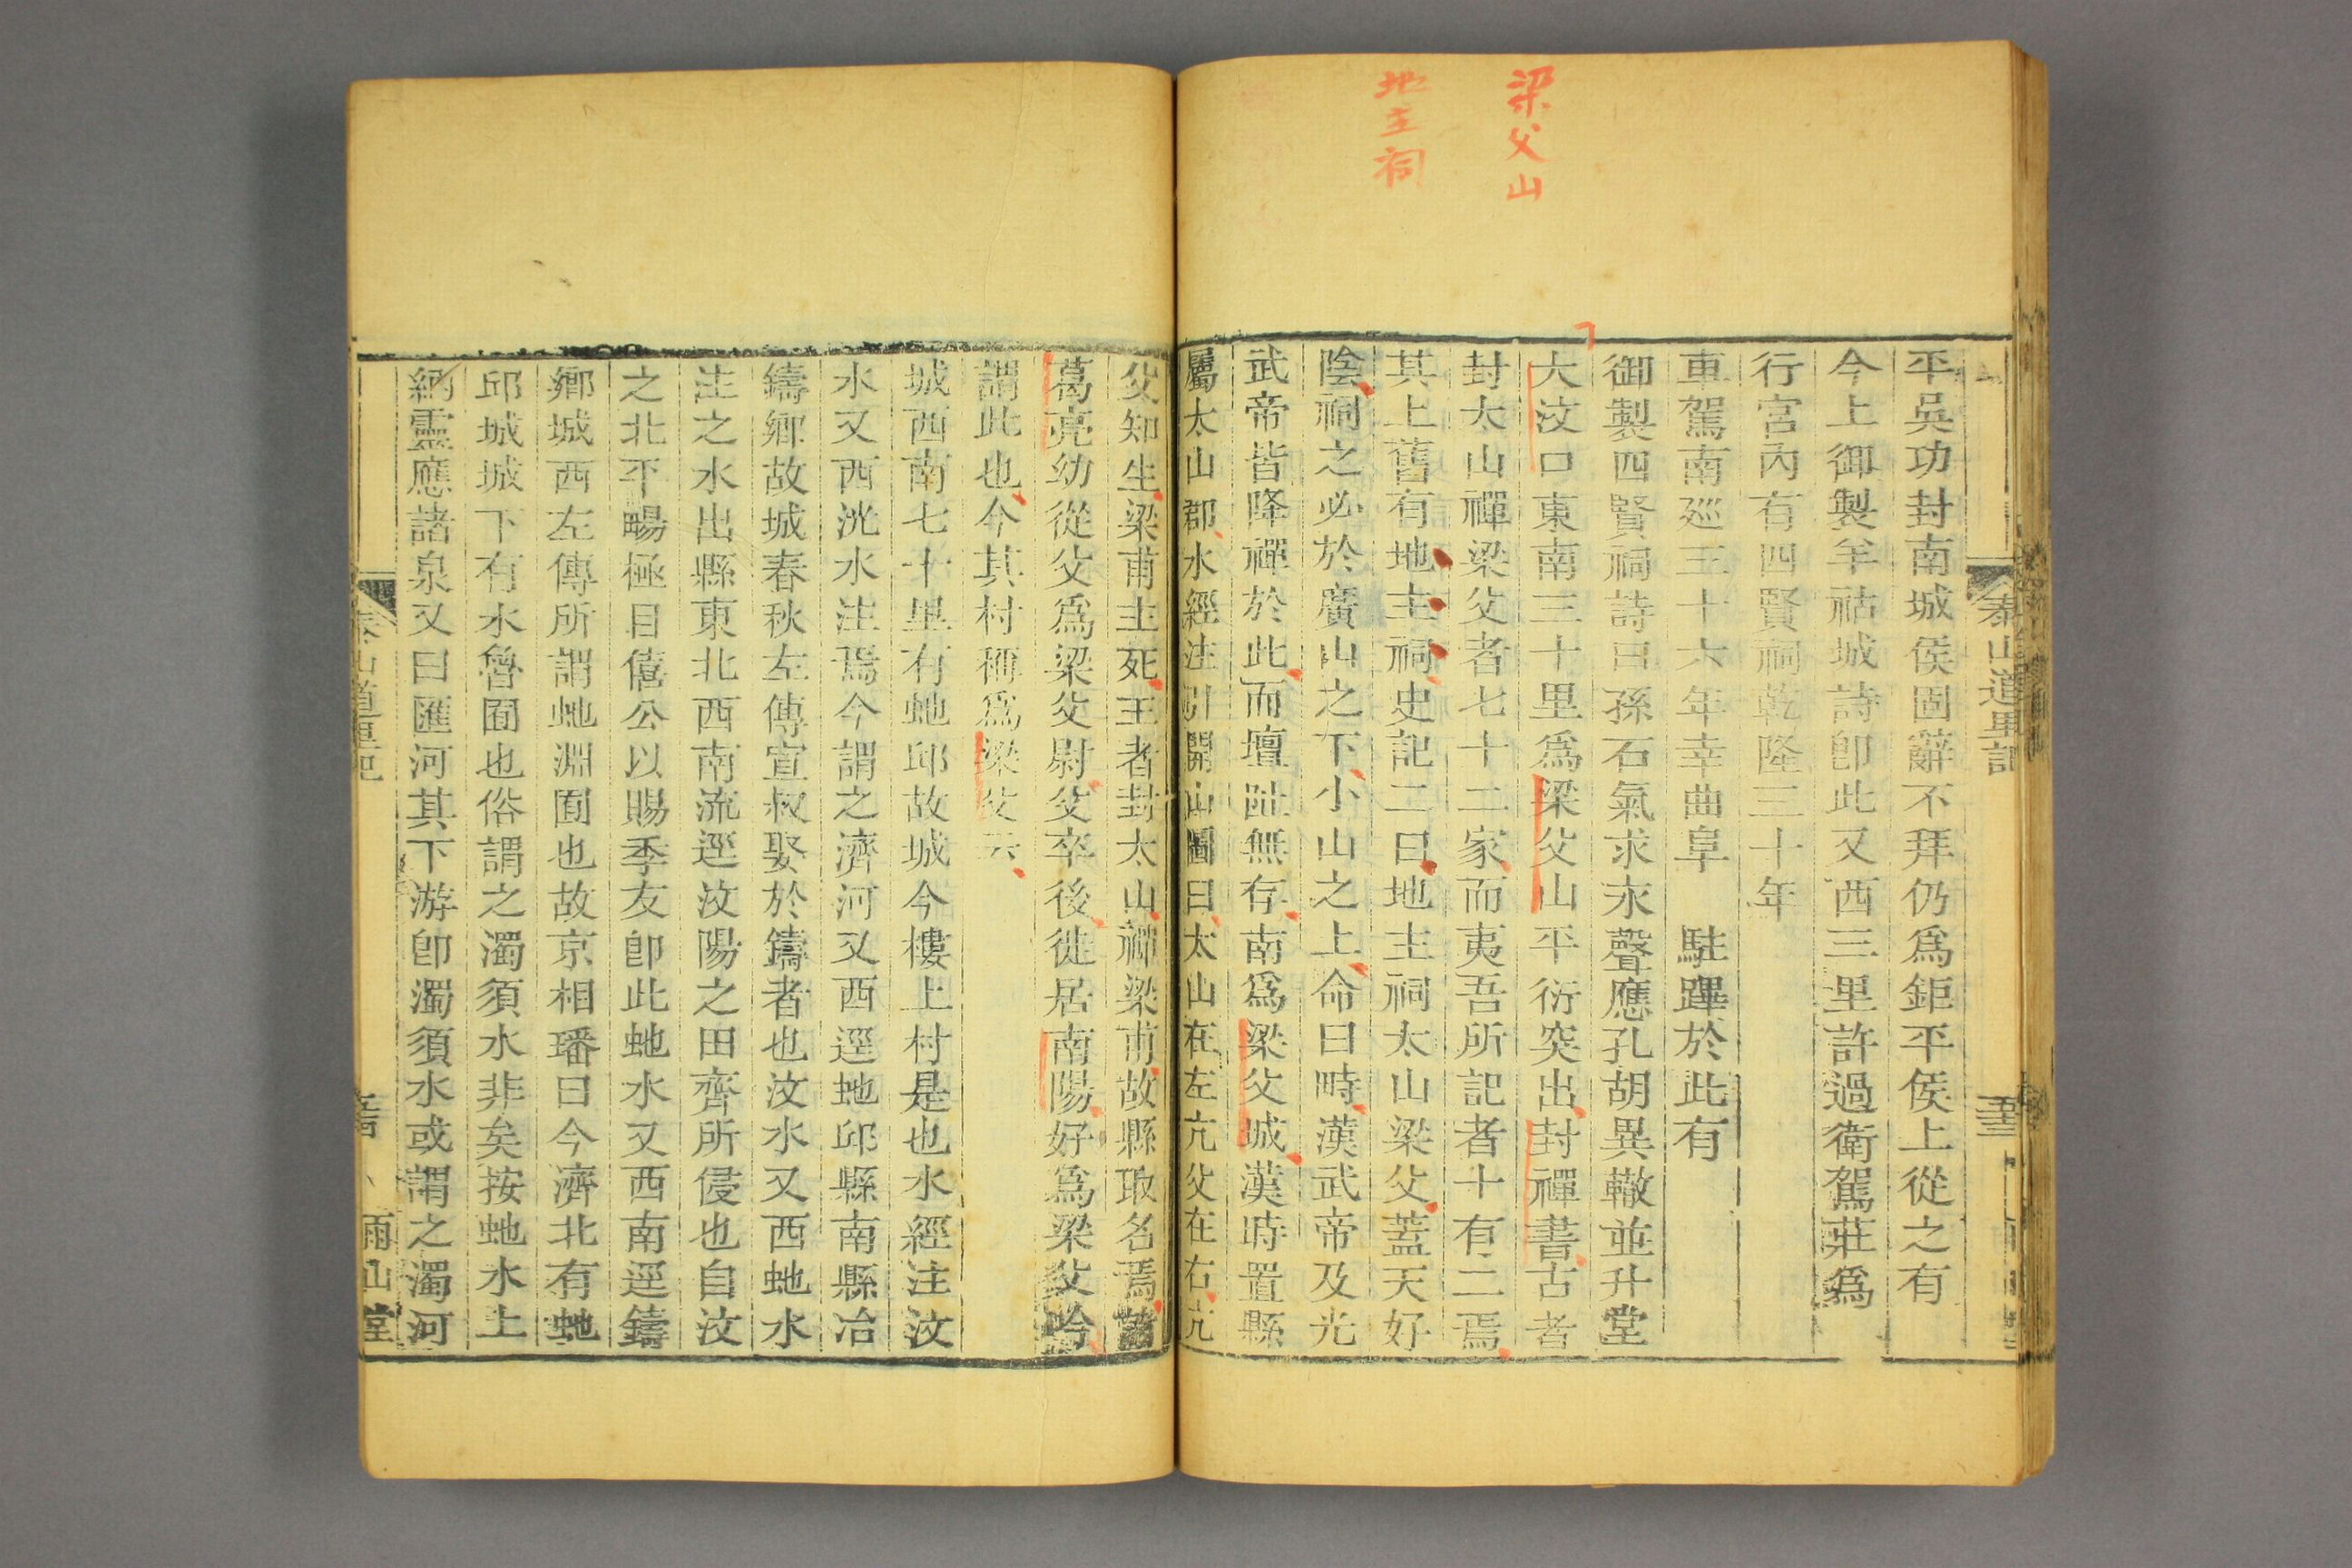 梁父山
地主祠
泰山道里記
平吳功封南城侯固辭不拜仍爲鉅平侯上從之有
今上御製羊祜城詩卽此又西三里許過衛駕莊爲
行宮內有四賢祠乾隆三十年
車駕南廵三十六年幸曲阜 駐蹕於此有
御製四賢祠詩曰孫石氣求永聲應孔胡異轍並升堂
大汶口東南三十里爲梁父山平衍突出封禪書古者
封太山禪梁父者七十二家而夷吾所記者十有二焉
其上舊有地主祠史記二曰地主祠太山梁父蓋天好
陰祠之必於廣山之下小山之上命曰畤漢武帝及光
武帝皆降禪於此而壇阯無存南爲梁父城漢時置縣
屬太山郡水經注引開山圖曰太山在左亢父在右亢
父知生梁甫主死王者封太山禪梁甫故縣取名焉諸
葛亮幼從父爲梁父尉父卒後徙居南陽好爲梁父吟
謂此也今其村稱爲梁父云
城西南七十里有虵邱故城今樓上村是也水經注汶
水又西洸水注焉今謂之濟河又西逕虵邱縣南縣治
鑄鄉故城春秋左傳宣叔娶於鑄者也汶水又西虵水
注之水出縣東北西南流逕汶陽之田齊所侵也自汶
之北平暢極目僖公以賜季友卽此虵水又西南逕鑄
鄉城西左傳所謂虵淵囿也故京相璠曰今濟北有虵
邱城城下有水魯囿也俗謂之濁須水非矣按虵水上
納靈應諸泉又曰匯河其下游卽濁須水或謂之濁河
泰山道里記
雨山堂